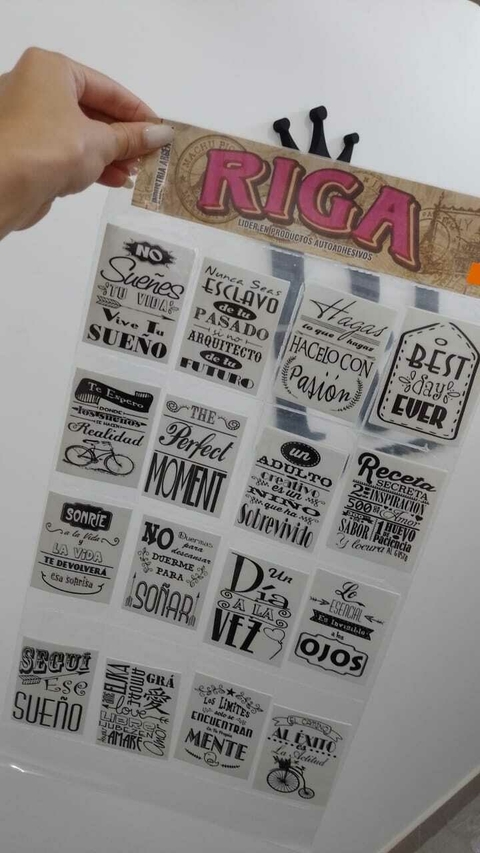 RIGA
LIDER EN PRODUCTOS AUTOADHESIVOS
NO
Sueñes
TU VIDA
Vive Tu
SUEÑO
Nunca Seas
ESCLAVO
de tu
PASADO
si no
ARQUITECTO
de tu
FUTURO
Hagas
lo que hagas
HACELO CON
Pasión
BEST
day
EVER
Te Espero
DONDE
los sueños
se hacen
Realidad
THE
Perfect
MOMENT
un
ADULTO
creativo
es un
NIÑO
que ha
Sobrevivido
Receta
SECRETA
INSPIRACIÓN
500
Amor
SABOR
1 HUEVO
Paciencia
y locura
SONRÍE
a la vida
LA VIDA
TE DEVOLVERÁ
esa sonrisa
NO
Duermas
para
descansar
DUERME
PARA
SOÑAR
Un
Dia
A LA
VEZ
Lo
ESENCIAL
Es Invisible
a los
OJOS
SEGUÍ
Ese
SUEÑO
GRÁ
love
AMARE
Amor
Los LÍMITES
solo se
ENCUENTRAN
MENTE
AL ÉXITO
La Actitud